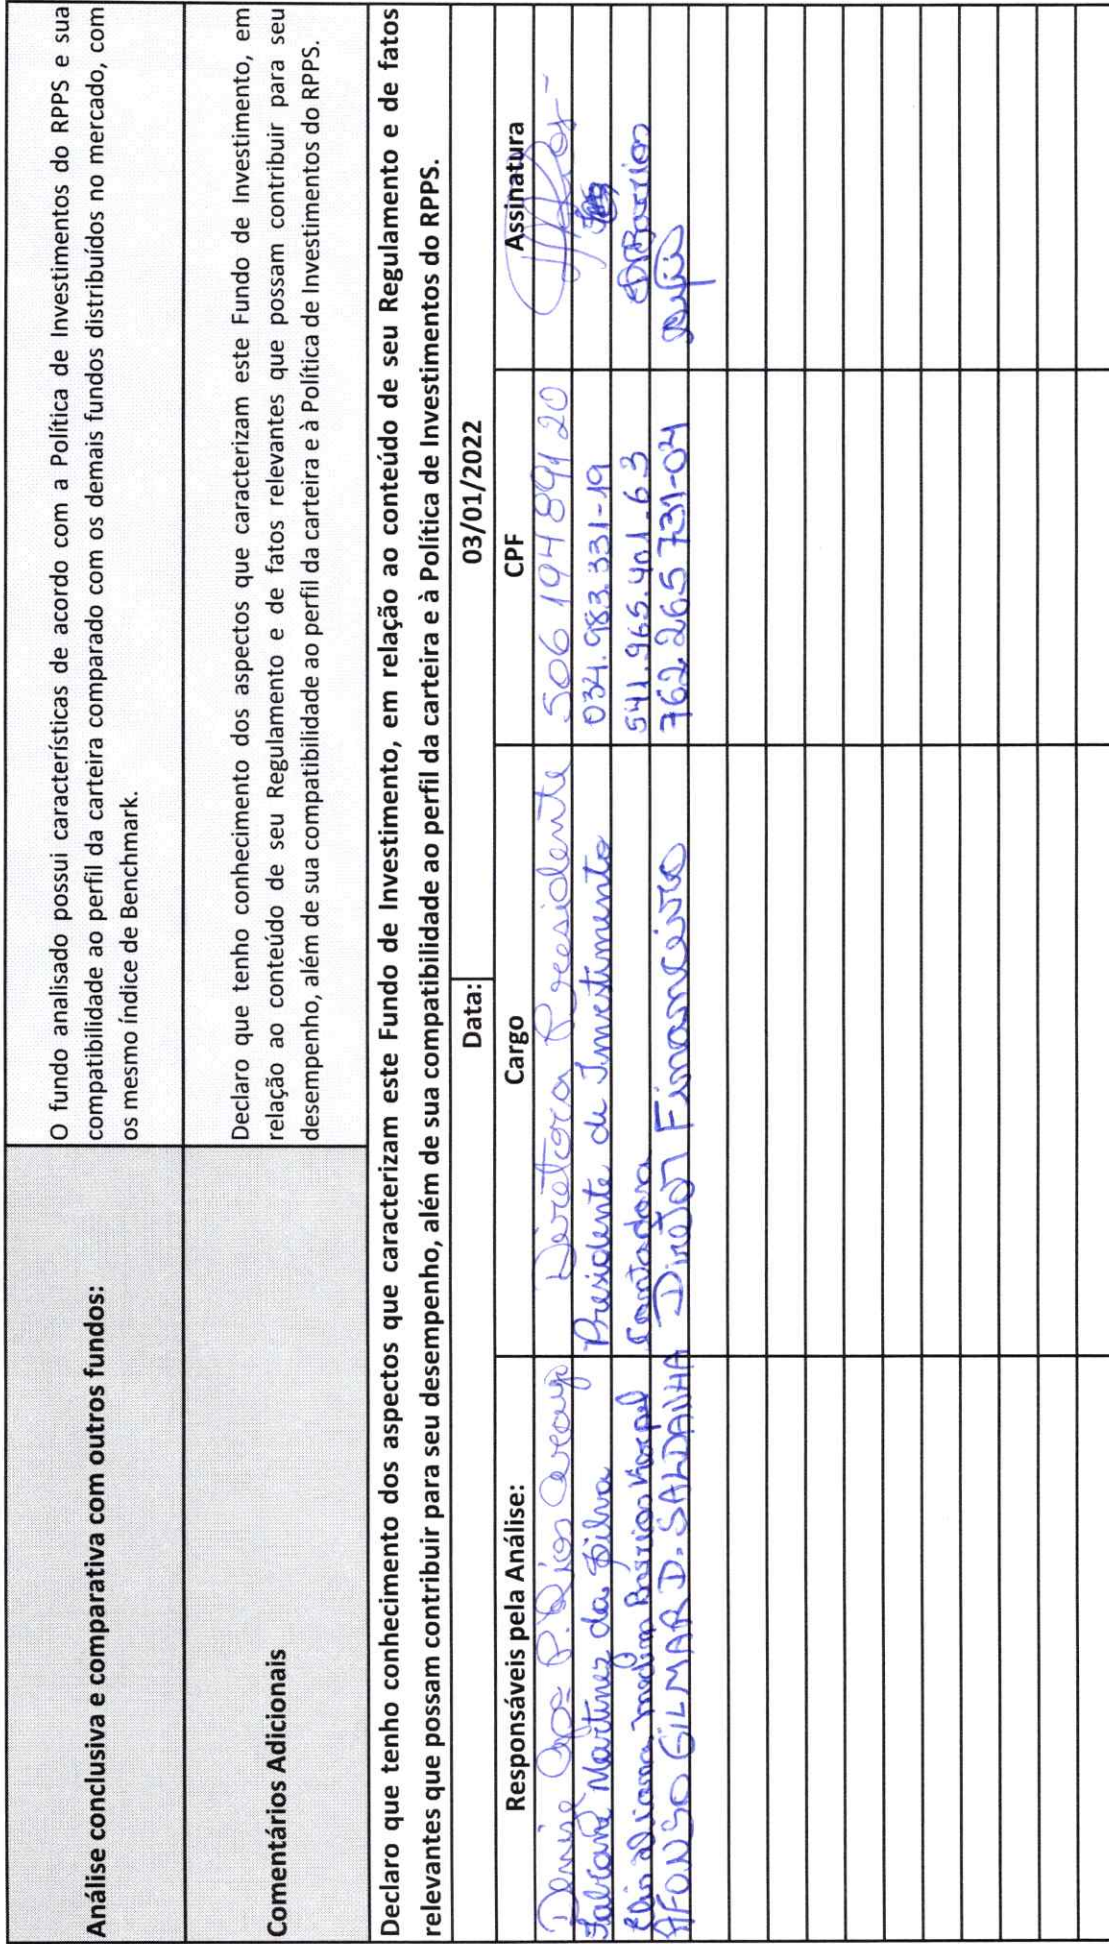 Análise conclusiva e comparativa com outros fundos:
O fundo analisado possui características de acordo com a Política de Investimentos do RPPS e sua
compatibilidade ao perfil da carteira comparado com os demais fundos distribuídos no mercado, com
os mesmo índice de Benchmark.
Comentários Adicionais
Declaro que tenho conhecimento dos aspectos que caracterizam este Fundo de Investimento, em
relação ao conteúdo de seu Regulamento e de fatos relevantes que possam contribuir para seu
desempenho, além de sua compatibilidade ao perfil da carteira e à Política de Investimentos do RPPS.
Declaro que tenho conhecimento dos aspectos que caracterizam este Fundo de Investimento, em relação ao conteúdo de seu Regulamento e de fatos
relevantes que possam contribuir para seu desempenho, além de sua compatibilidade ao perfil da carteira e à Política de Investimentos do RPPS.
Data: 03/01/2022
Responsáveis pela Análise: Cargo CPF Assinatura
Denise P. Rios Araujo Diretora Presidente 506 194 891 20
Fabiane Martinez da Silva Presidente de Investimento 034.983.331-19
Contadora 541.965.401.63 Barrios
AFONSO GILMAR D. SALDANHA Diretor Financeiro 762 265 731-04